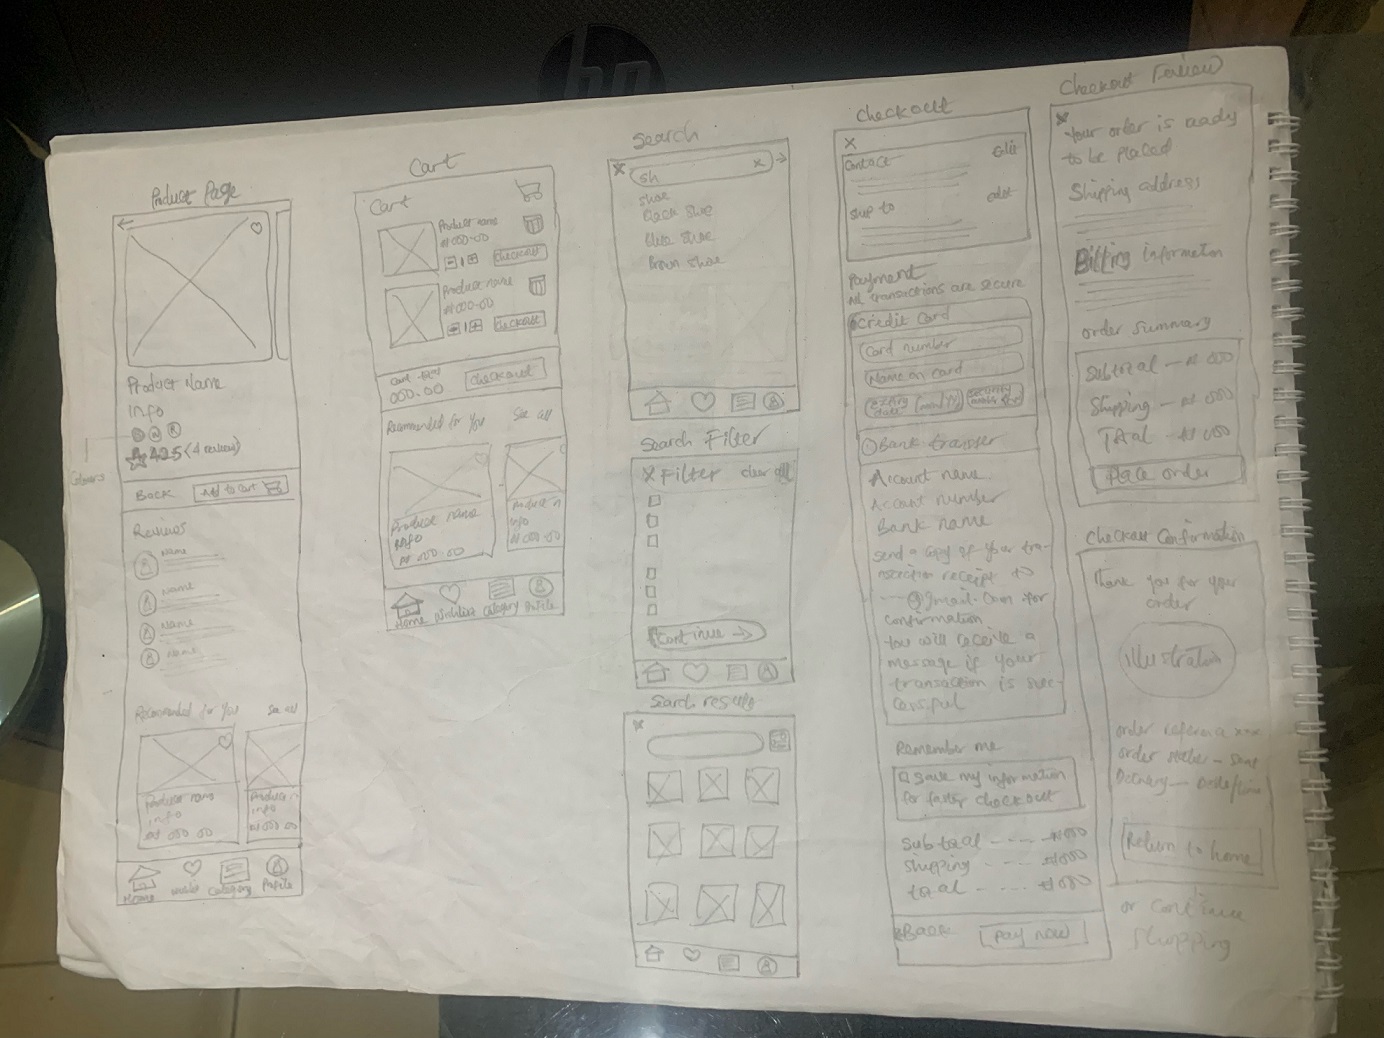 hp
Product Page
Product Name
info
B W R
4.25 (4 reviews)
Colours
Back
Add to cart
Reviews
Name
Name
Name
Name
Recommended for You
See all
Product name
info
₦ 000.00
Product n
info
₦ 000.00
Home
Category
Profile
Cart
Cart
Product name
₦ 000.00
- 1 +
Checkout
Product name
₦ 000.00
- 1 +
Checkout
Cart total
000.00
Checkout
Recommended for You
See all
Product name
info
₦ 000.00
Product n
info
₦ 000.00
Home
Wishlist
Category
Profile
Search
X
sh
X
Shoe
Black Shoe
Blue Shoe
Brown Shoe
Search Filter
X Filter
clear all
Continue
Search results
X
Checkout
X
Contact
edit
Ship to
edit
Payment
All transactions are secure
Credit Card
Card number
Name on card
expiry date
Bank transfer
Account name
Account number
Bank name
send a copy of your tra-
nsaction receipt to
----@gmail.com for
confirmation
You will receive a
message if your
transaction is suc-
cessful
Remember me
save my information
for faster checkout
Subtotal ---- ₦000
shipping ---- ₦000
total ---- ₦000
Back
Pay now
Checkout Review
X
Your order is ready
to be placed
Shipping address
Billing information
order summary
Subtotal — ₦ 000
Shipping — ₦ 000
Total — ₦ 000
Place order
Checkout Confirmation
Thank you for your
order
illustration
order reference xxx
Delivery — Date/time
Return to home
or continue
shopping